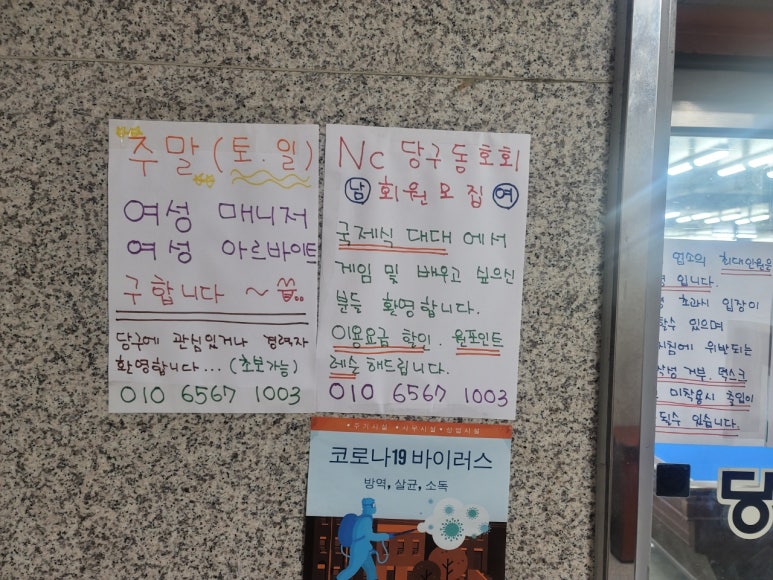 주말 (토.일)
여성 매니저
여성 아르바이트
구합니다 ~
당구에 관심있거나 경력자
환영합니다... (초보가능)
010 6567 1003
Nc 당구동호회
남 회원모집 여
국제식 대대 에서
게임 및 배우고 싶으신
분들 환영합니다.
이용요금 할인. 원포인트
레슨 해드립니다.
010 6567 1003
코로나19 바이러스
방역, 살균, 소독
업소의 최대인원은
입니다.
초과시 입장이
할수 있으며
지침에 위반되는
작성 거부.
미착용시 출입이
될수 있습니다.
당